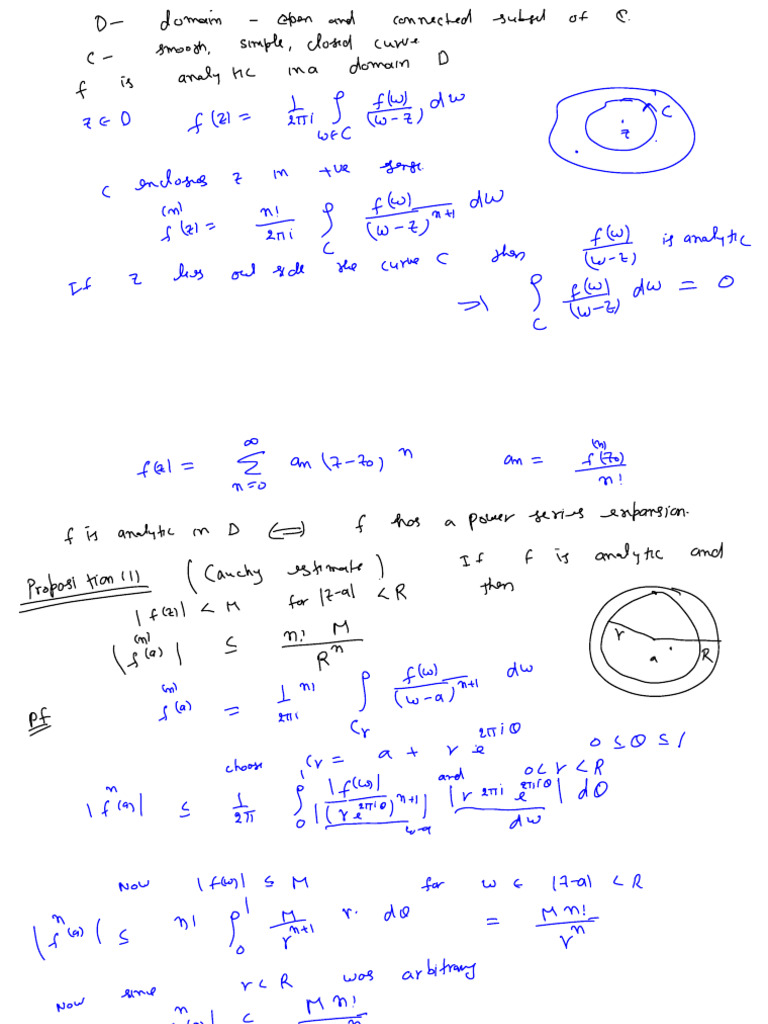 D - domain - open and connected subset of ℂ.
C - smooth, simple, closed curve
f is analytic in a domain D
z ∈ D f(z) = 1/2πi ∮_{w∈C} f(w)/(w-z) dw
C
z
C encloses z in +ve sense.
f^(n)(z) = n!/2πi ∮_C f(w)/(w-z)^{n+1} dw
If z lies out side the curve C then f(w)/(w-z) is analytic
⇒ ∮_C f(w)/(w-z) dw = 0
f(z) = ∑_{n=0}^∞ an (z-z₀)^n an = f^(n)(z₀)/n!
f is analytic in D ⟺ f has a power series expansion.
Proposition (1) (Cauchy estimate) If f is analytic and
|f(z)| < M for |z-a| < R then
|f^(n)(a)| ≤ n! M/R^n
r
a
R
Pf f^(n)(a) = 1/2πi n! ∮_{Cr} f(w)/(w-a)^{n+1} dw
choose Cr = a + r e^{2πiθ} 0 ≤ θ ≤ 1
and 0 < r < R
|f^n(a)| ≤ 1/2π ∫_0^1 |f(w)|/|(r e^{2πiθ})^{n+1}| |r 2πi e^{2πiθ}| dθ
w-a dw
Now |f(w)| ≤ M for w ∈ |z-a| < R
|f^n(a)| ≤ n! ∫_0^1 M/r^{n+1} r. dθ = M n!/r^n
Now since r < R was arbitrary